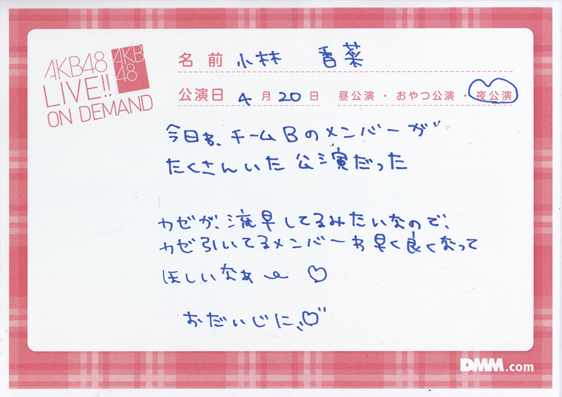 AKB48
LIVE!!
ON DEMAND
AKB
48
名前 小林 香菜
公演日 4月20日 昼公演・おやつ公演・夜公演
今日も、チームBのメンバーが
たくさんいた公演だった
カゼが、流早してるみたいなので、
カゼ引いてるメンバーも早く良くなって
ほしいなぁ ♡
おだいじに♡
DMM.com